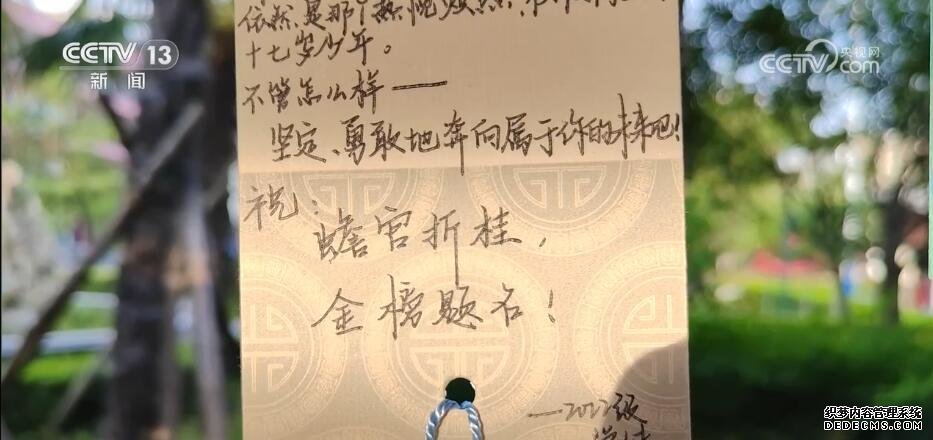 CCTV 13
新闻
央视网
CCTV.com
依然是那个热忱
十七岁少年。
不管怎么样——
坚定、勇敢地奔向属于你的未来吧!
祝:
蟾宫折桂,
金榜题名!
——2022级
织梦内容管理系统
DEDECMS.COM